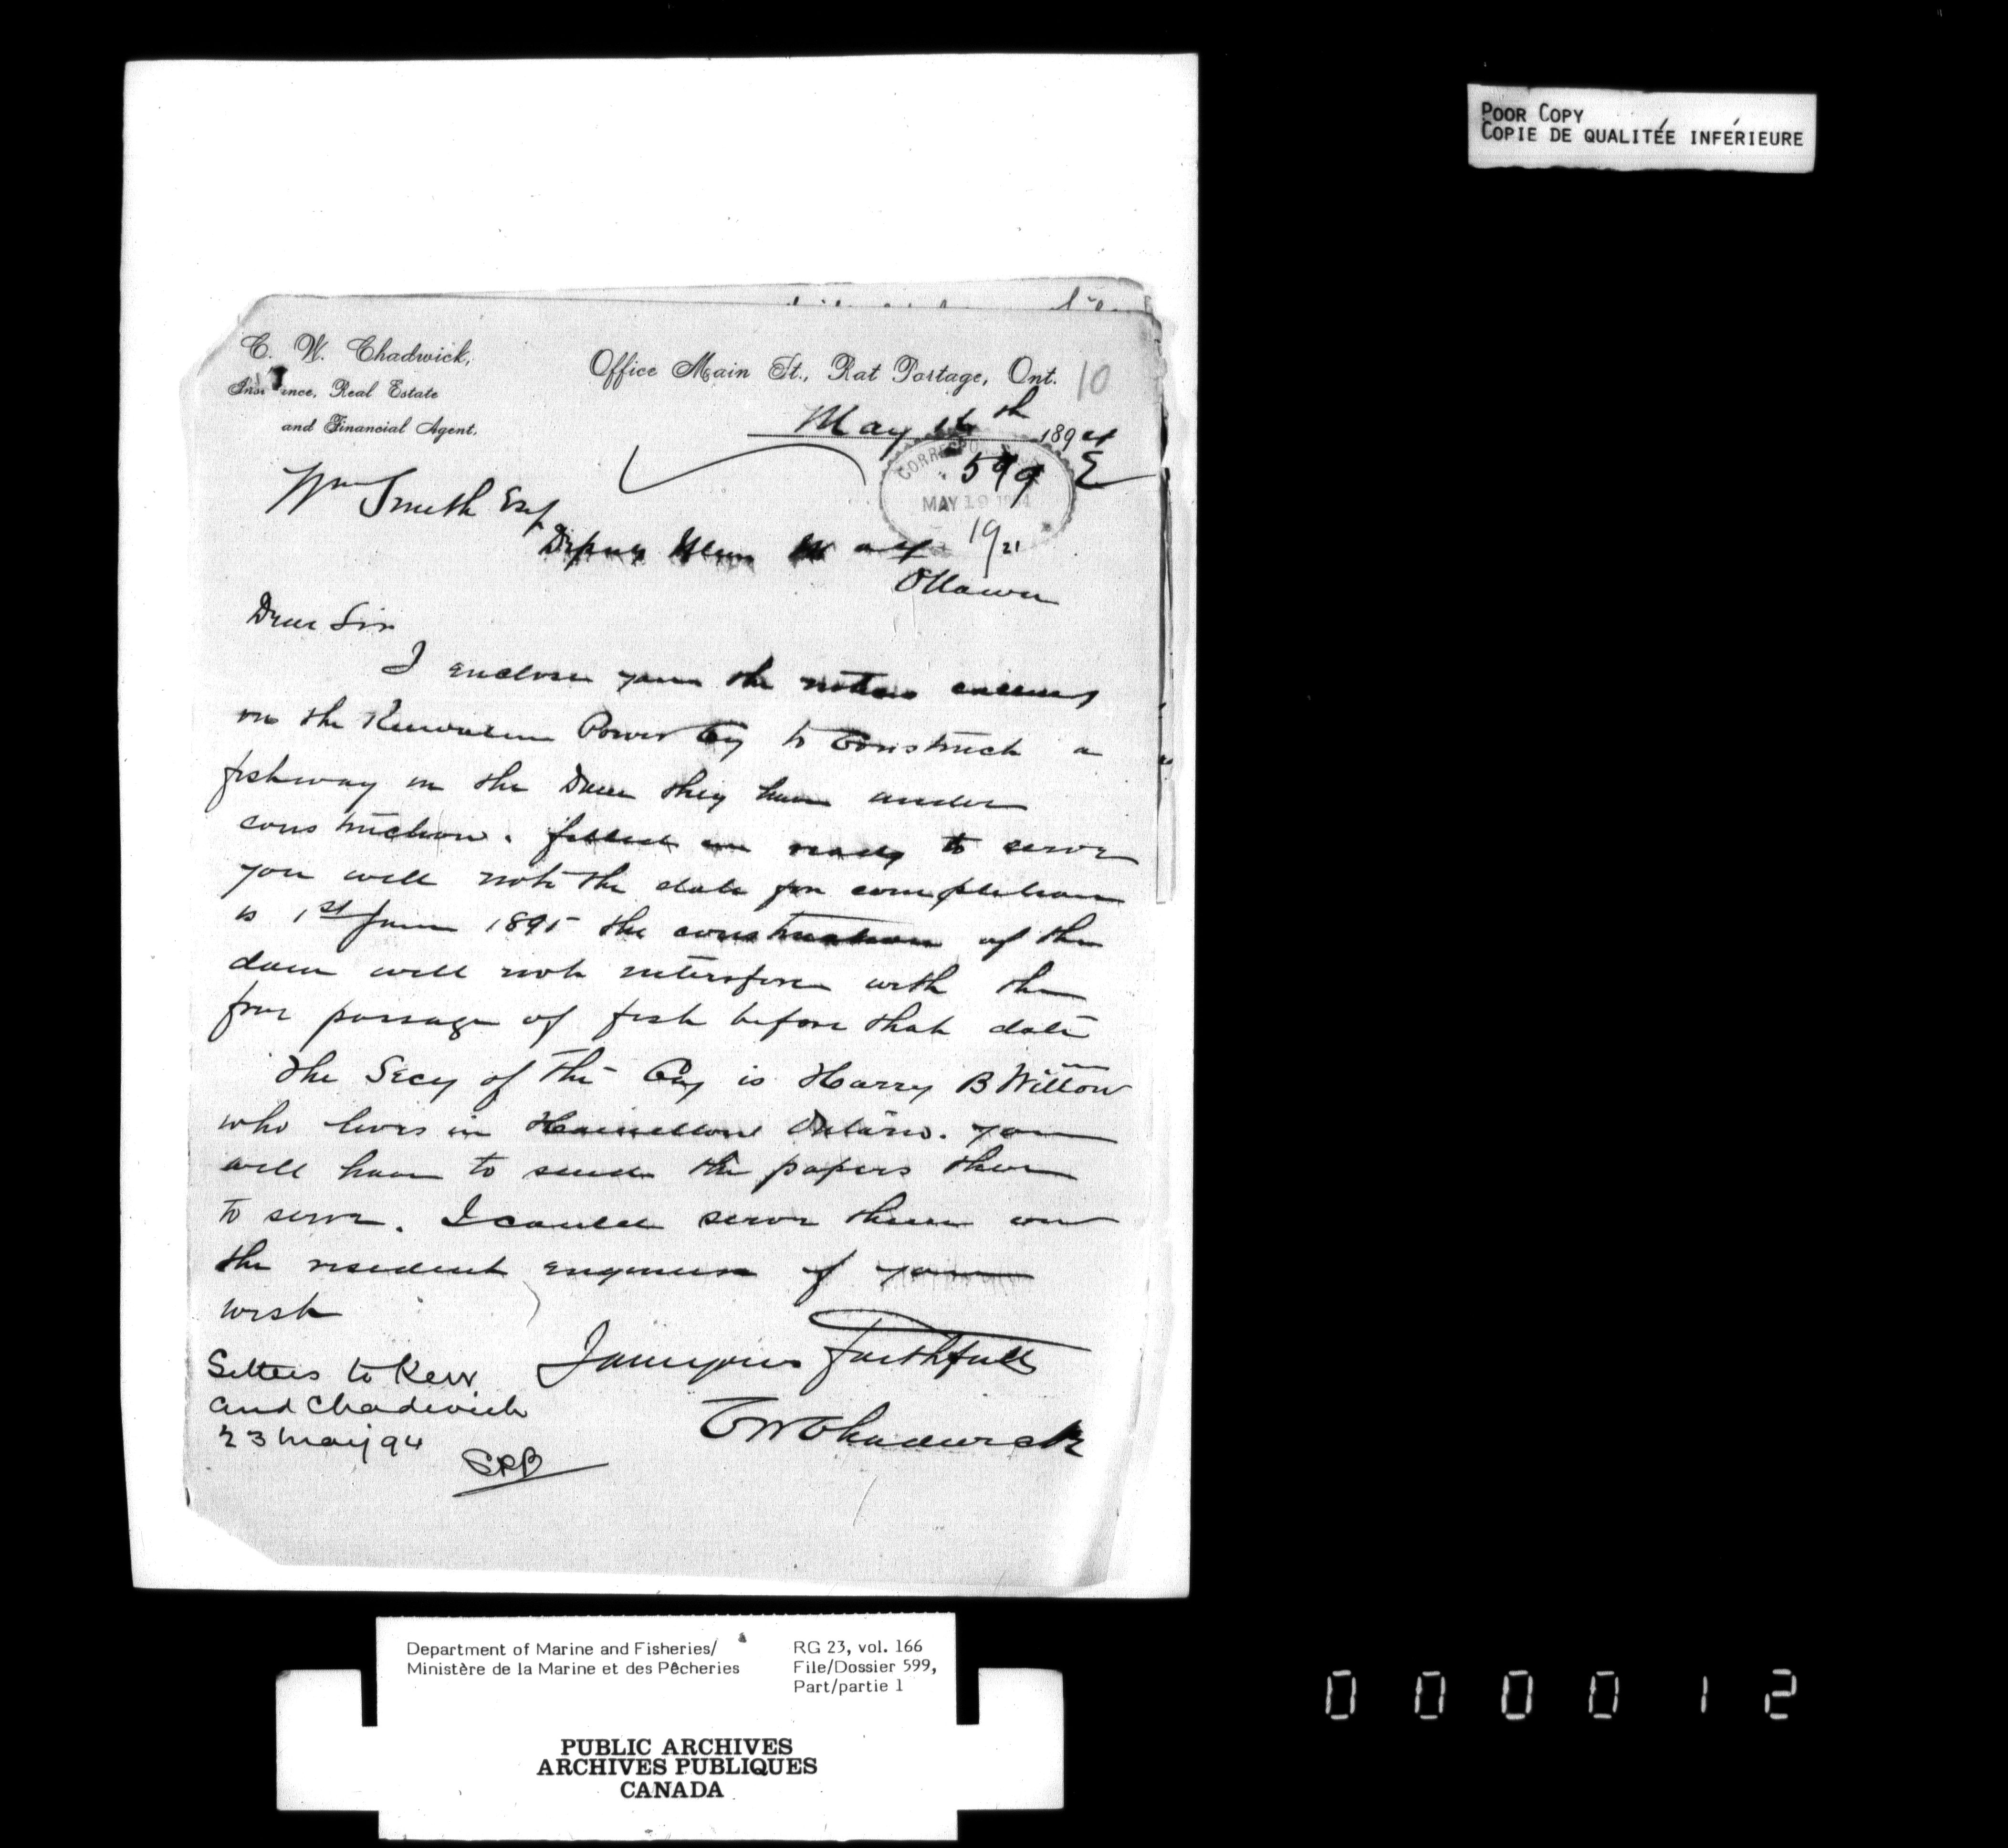 POOR COPY
COPIE DE QUALITÉE INFÉRIEURE
C. W. Chadwick,
Insurance, Real Estate
and Financial Agent.
Office Main St., Rat Portage, Ont. 10
May 16th 1894
CORRESPO
599 E
MAY 19 1894
19/21
Wm Smith Esq
Deputy Min M and F
Ottawa
Dear Sir
I enclose you the notices calling
on the Keewatin Power Coy to Construct a
fishway in the Dam they have under
construction. filled in ready to serve
you will note the date for completion
is 1st June 1895 the construction of the
dam will not interfere with the
free passage of fish before that date
The Secy of the Coy is Harry B Witton
who lives in Hamilton Ontario. you
will have to send the papers there
to serve. I could serve them on
the resident engineer if you
wish
I am yours faithfully
C W Chadwick
Letters to Kerr
and Chadwick
23 May 94
Department of Marine and Fisheries/
Ministère de la Marine et des Pêcheries
RG 23, vol. 166
File/Dossier 599,
Part/partie 1
PUBLIC ARCHIVES
ARCHIVES PUBLIQUES
CANADA
000012